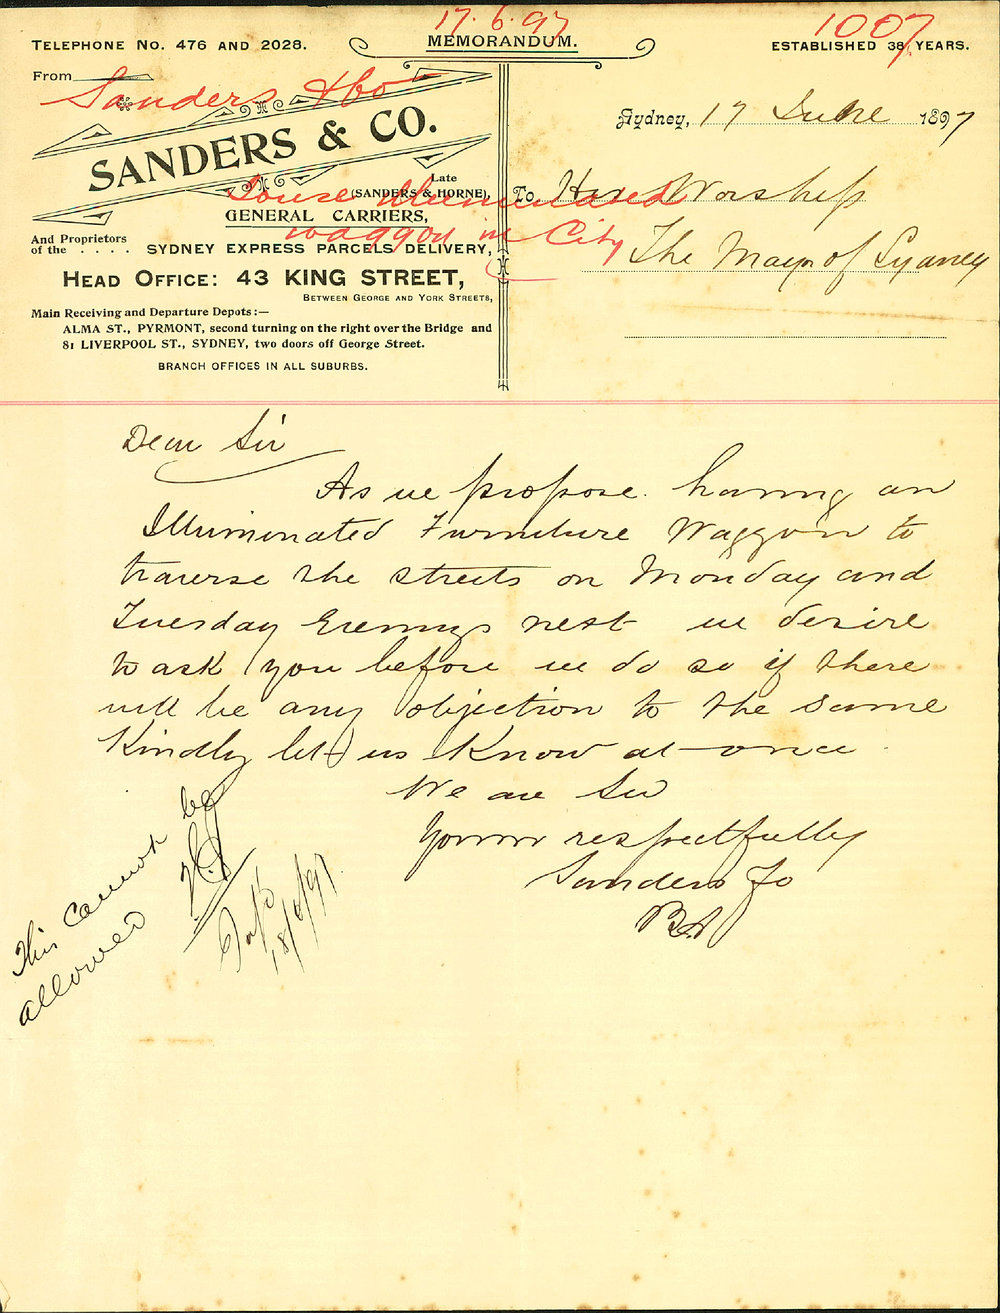 17.6.97
1007
TELEPHONE No. 476 AND 2028.
MEMORANDUM.
ESTABLISHED 38 YEARS.
From
Sanders & Co
SANDERS & CO.
Late
(SANDERS & HORNE),
GENERAL CARRIERS,
And Proprietors
of the . . . . SYDNEY EXPRESS PARCELS DELIVERY,
HEAD OFFICE: 43 KING STREET,
BETWEEN GEORGE AND YORK STREETS,
Main Receiving and Departure Depots:—
ALMA ST., PYRMONT, second turning on the right over the Bridge and
81 LIVERPOOL ST., SYDNEY, two doors off George Street.
BRANCH OFFICES IN ALL SUBURBS.
Illuminated
waggon in City
Sydney, 17 June 1897
To His Worship
The Mayor of Sydney
Dear Sir
As we propose having an
Illuminated Furniture Waggon to
traverse the streets on Monday and
Tuesday Evenings next we desire
to ask you before we do so if there
will be any objection to the same
Kindly let us know at once
We are Sir
Yours respectfully
Sanders & Co
This cannot be
allowed
18/6/97